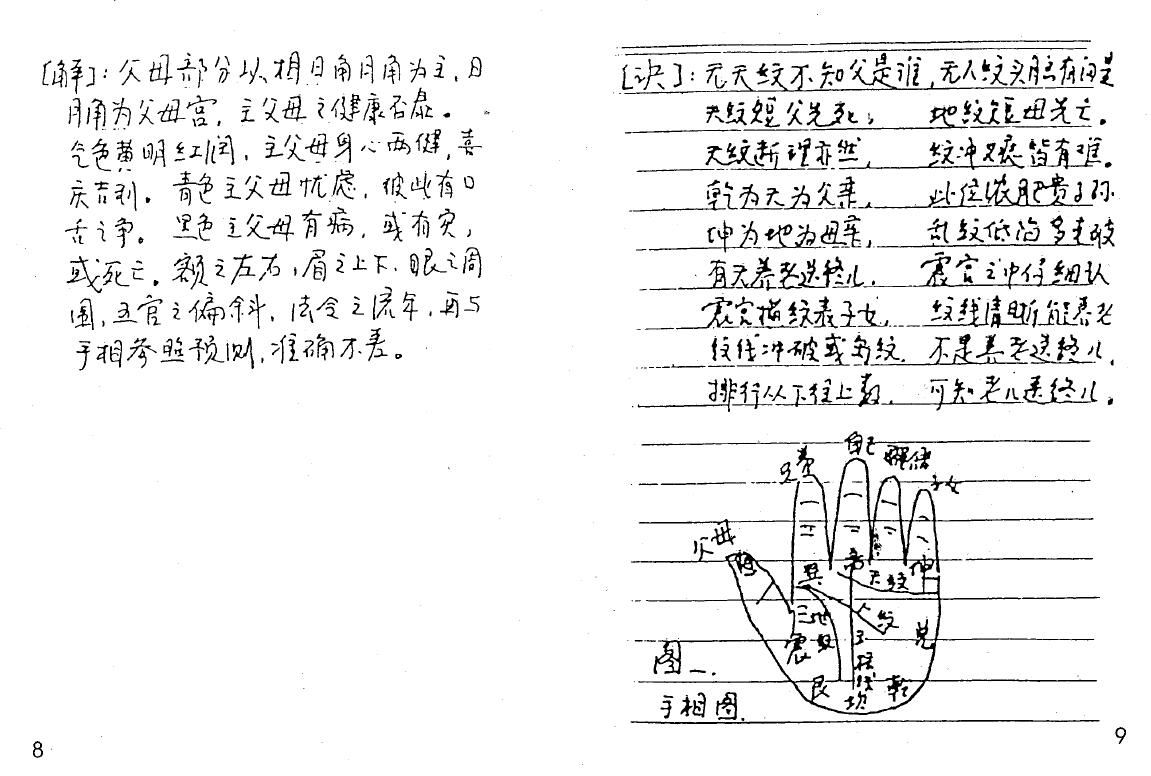 [解]：父母部分以相日角月角为主，日
月角为父母宫，主父母之健康否虑。
气色黄明红润，主父母身心两健，喜
庆吉利。青色主父母忧虑，彼此有口
舌之争。黑色主父母有病，或有灾，
或死亡。额之左右，眉之上下，眼之周
围，五官之偏斜，法令之流年，再与
手相参照预测，准确不差。
8
[诀]：无天纹不知父是谁，无人纹头脑有问题
天纹短父先死； 地纹短母先亡。
天纹断理亦然， 纹冲又痕皆有难。
乾为天为父亲， 此位浓肥贵子孙
坤为地为母亲， 乱纹低陷多克破
有无养老送终儿， 震宫之中仔细认
震宫横纹表子女， 纹线清晰能养老
纹线冲破或岛纹， 不是养老送终儿，
排行从下往上数， 可知老儿送终儿。
父母
兄弟
自己
子女
巽
离
天纹
坤
人纹
地纹
震
兑
玉柱线
艮
坎
乾
图一
手相图
9